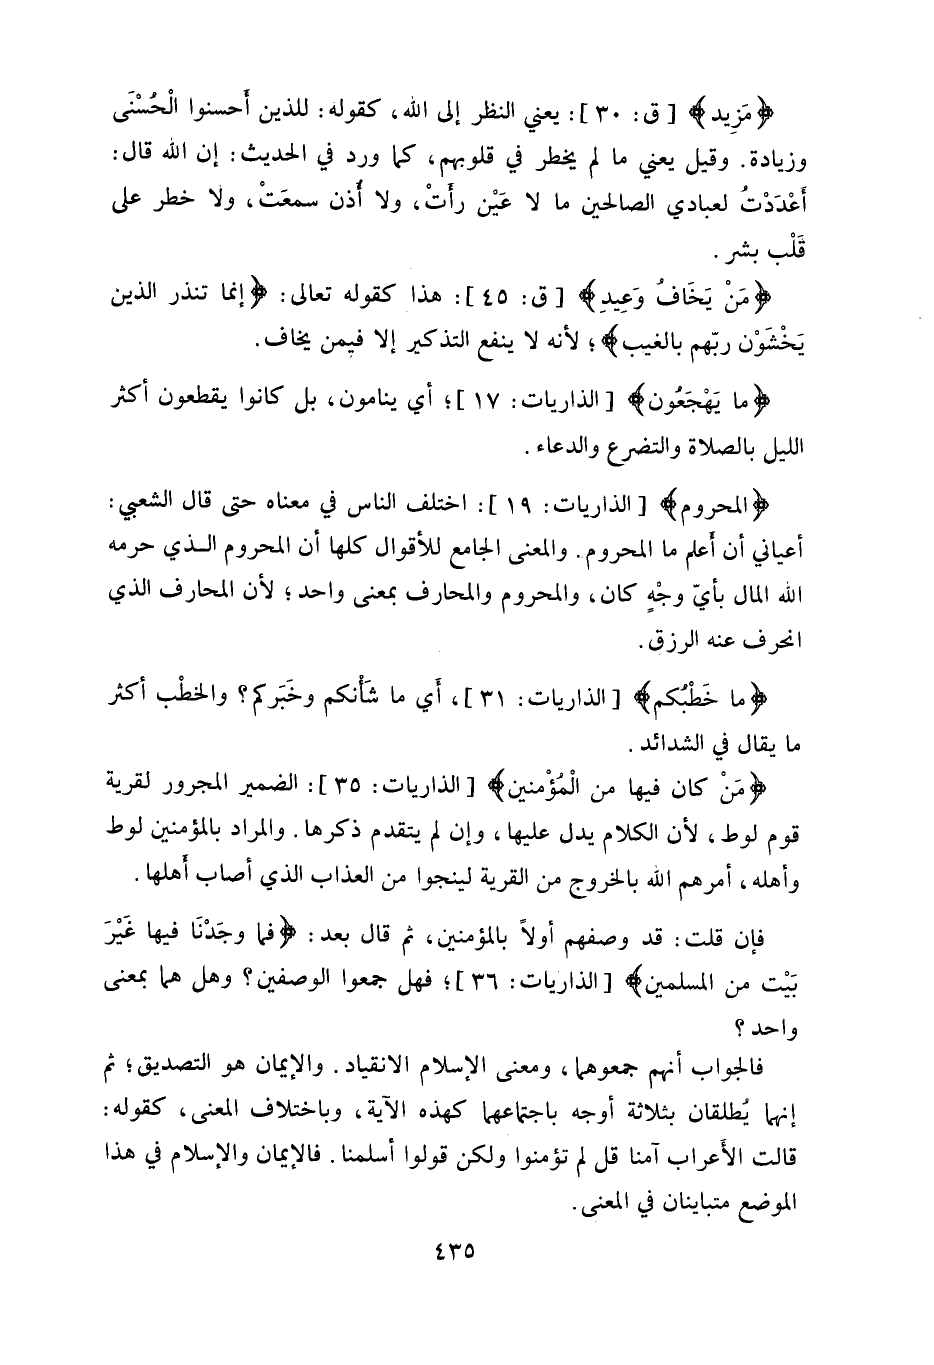 ﴿مَزِيد﴾ [ ق: ٣٠ ]: يعني النظر إلى الله، كقوله: للذين أَحسنوا الْحُسْنَى
وزيادة. وقيل يعني ما لم يخطر في قلوبهم، كما ورد في الحديث: إن الله قال:
أَعْدَدْتُ لعبادي الصالحين ما لا عَيْن رأَتْ، ولا أُذن سمعَتْ، ولا خطر على
قَلْب بشر.
﴿مَنْ يَخَافُ وَعِيدِ﴾ [ ق: ٤٥ ]: هذا كقوله تعالى: ﴿إنما تنذر الذين
يَخْشَوْن ربّهم بالغيب﴾؛ لأنه لا ينفع التذكير إلا فيمن يخاف.
﴿ما يَهْجَعُون﴾ [ الذاريات: ١٧ ]؛ أي ينامون، بل كانوا يقطعون أكثر
الليل بالصلاة والتضرع والدعاء.
﴿المحروم﴾ [ الذاريات: ١٩ ]: اختلف الناس في معناه حتى قال الشعبي:
أعياني أن أَعلم ما المحروم. والمعنى الجامع للأقوال كلها أن المحروم الـذي حرمه
الله المال بأيّ وجْهٍ كان، والمحروم والمحارف بمعنى واحد؛ لأن المحارف الذي
انحرف عنه الرزق.
﴿ما خَطْبُكم﴾ [ الذاريات: ٣١ ]، أَي ما شَأْنكم وخَبَركم؟ والخطْب أكثر
ما يقال في الشدائد.
﴿مَنْ كان فيها من الْمُؤْمنين﴾ [ الذاريات: ٣٥ ]: الضمير المجرور لقرية
قوم لوط، لأن الكلام يدل عليها، وإن لم يتقدم ذكرها. والمراد بالمؤمنين لوط
وأهله، أمرهم الله بالخروج من القرية لينجوا من العذاب الذي أصاب أَهلها.
فإن قلت: قد وصفهم أولاً بالمؤمنين، ثم قال بعد: ﴿فما وجَدْنَا فيها غَيْرَ
بَيْت من المسلمين﴾ [ الذاريات: ٣٦ ]؛ فهل جمعوا الوصفين؟ وهل هما بمعنى
واحد؟
فالجواب أنهم جمعوهما، ومعنى الإسلام الانقياد. والإيمان هو التصديق؛ ثم
إنهما يُطلقان بثلاثة أوجه باجتماعهما كهذه الآية، وباختلاف المعنى، كقوله:
قالت الأَعراب آمنا قل لم تؤمنوا ولكن قولوا أسلمنا. فالإيمان والإسلام في هذا
الموضع متباينان في المعنى.
٤٣٥